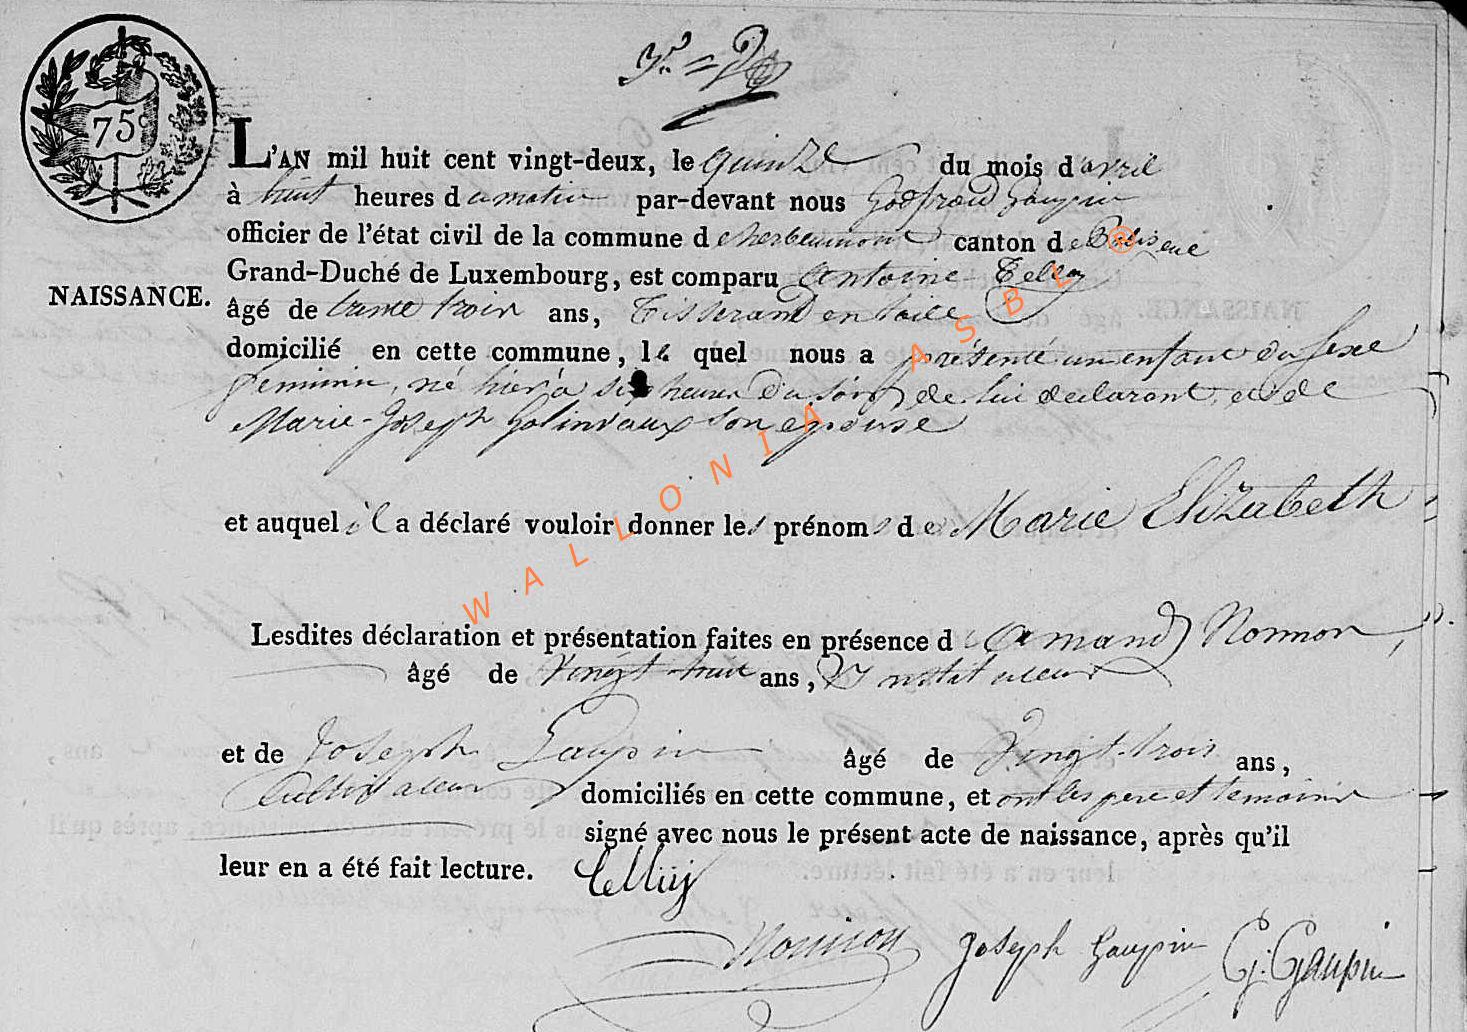 75c
L'AN mil huit cent vingt-deux, le quinze du mois d'avril
à huit heures du matin par-devant nous Godfroid Gaupin
officier de l'état civil de la commune de herbeumont canton de
NAISSANCE.
Grand-Duché de Luxembourg, est comparu Antoine
âgé de trente trois ans, Tisserand en toile
domicilié en cette commune, le quel nous a présenté un enfant du sexe
feminin, né hier à six heures du soir, de lui declarant, et de
Marie-Joseph Golinvaux son epouse
et auquel il a déclaré vouloir donner les prénoms de Marie Elizabeth
Lesdites déclaration et présentation faites en présence d'Amand Nonnon
âgé de vingt-huit ans, Instituteur
et de Joseph Gaupin âgé de Vingt-trois ans,
Cultivateur domiciliés en cette commune, et ont les pere et temoins
signé avec nous le présent acte de naissance, après qu'il
leur en a été fait lecture.
Nonnon Joseph Gaupin G: Gaupin
WALLONIA ASBL ®